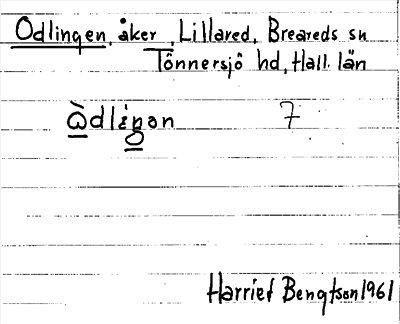 Odlingen, åker, Lillared, Breareds sn
Tönnersjö hd, Hall. län
ὼdliŋən 7
Harriet Bengtson 1961